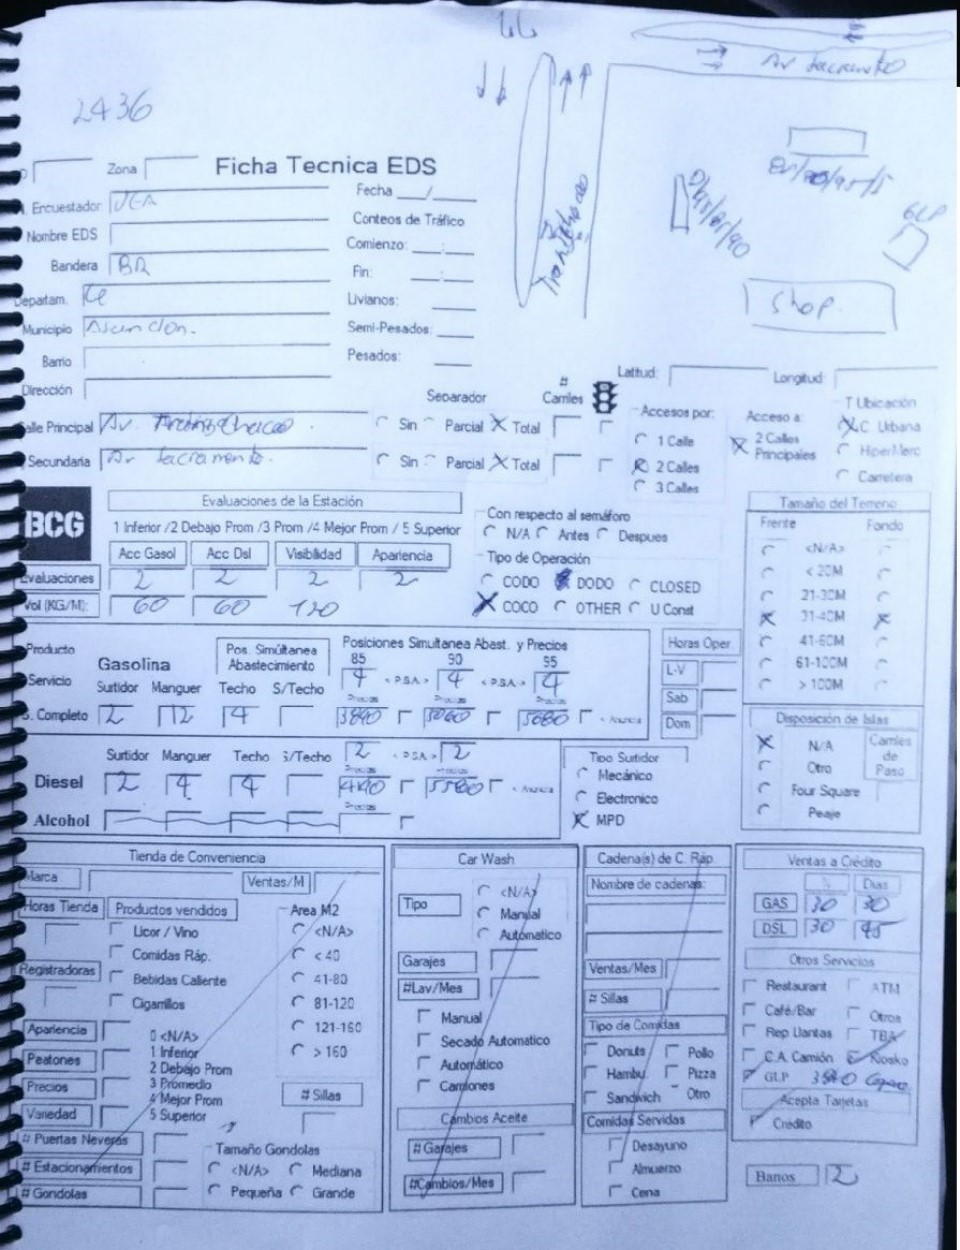 Av Sacramento
2436
Zona Ficha Tecnica EDS
Fecha
Encuestador JEA
Conteos de Tráfico
Nombre EDS
Comienzo:
Bandera BR
Fin:
Departam.
Livianos:
Municipio Asuncion.
Semi-Pesados:
Barrio
Pesados:
Dirección
GLP
Shop.
Latitud: Longitud:
Separador # Carriles Accesos por: Acceso a: T Ubicación
Calle Principal Av. Sin Parcial X Total 1 Calle X 2 Calles Principales X C. Urbana
Secundaria Av Sacramento. Sin Parcial X Total X 2 Calles HiperMerc
3 Calles Carretera
BCG
Evaluaciones de la Estación
1 Inferior /2 Debajo Prom /3 Prom /4 Mejor Prom / 5 Superior
Acc Gasol Acc Dsl Visibilidad Apariencia
Evaluaciones 2 2 2 2
Vol (KG/M): 60 60 120
Con respecto al semáforo
N/A Antes Despues
Tipo de Operación
CODO DODO CLOSED
X COCO OTHER U Const
Tamaño del Terreno
Frente Fondo
<N/A>
< 20M
21-30M
X 31-40M X
41-60M
61-100M
> 100M
Producto
Servicio
Gasolina
Pos. Simúltanea Abastecimiento
Posiciones Simultanea Abast. y Precios
85 90 95
4 < P.S.A > 4 < P.S.A > 4
Surtidor Manguer Techo S/Techo
S. Completo 2 12 4 3890 5060 5680
Horas Oper.
L-V
Sab
Dom
Surtidor Manguer Techo S/Techo 2 < P.S.A > 2
Diesel 2 4 4
Alcohol
Tipo Surtidor
Mecánico
Electronico
X MPD
Disposición de Islas
X N/A
Otro
Four Square
Peaje
Carriles de Paso
Tienda de Conveniencia
Marca Ventas/M
Horas Tienda Productos vendidos Area M2
Licor / Vino <N/A>
Comidas Ráp. < 40
Registradoras Bebidas Caliente 41-80
Cigarrillos 81-120
Apariencia 121-160
Peatones > 160
Precios
Variedad
0 <N/A>
1 Inferior
2 Debajo Prom
3 Promedio
4 Mejor Prom
5 Superior
# Sillas
# Puertas Neveras
# Estacionamientos
# Gondolas
Tamaño Gondolas
<N/A> Mediana
Pequeña Grande
Car Wash
Tipo
<N/A>
Manual
Automatico
Garajes
#Lav/Mes
Manual
Secado Automatico
Automático
Camiones
Cambios Aceite
# Garajes
#Cambios/Mes
Cadena(s) de C. Ráp.
Nombre de cadenas:
Ventas/Mes
# Sillas
Tipo de Comidas
Donuts Pollo
Hambu. Pizza
Sandwich Otro
Comidas Servidas
Desayuno
Almuerzo
Cena
Ventas a Crédito
% Dias
GAS 30 30
DSL 30 45
Otros Servicios
Restaurant ATM
Café/Bar Otros
Rep Llantas TBA
C.A. Camión Kiosko
GLP
Acepta Tarjetas
Crédito
Banos 2